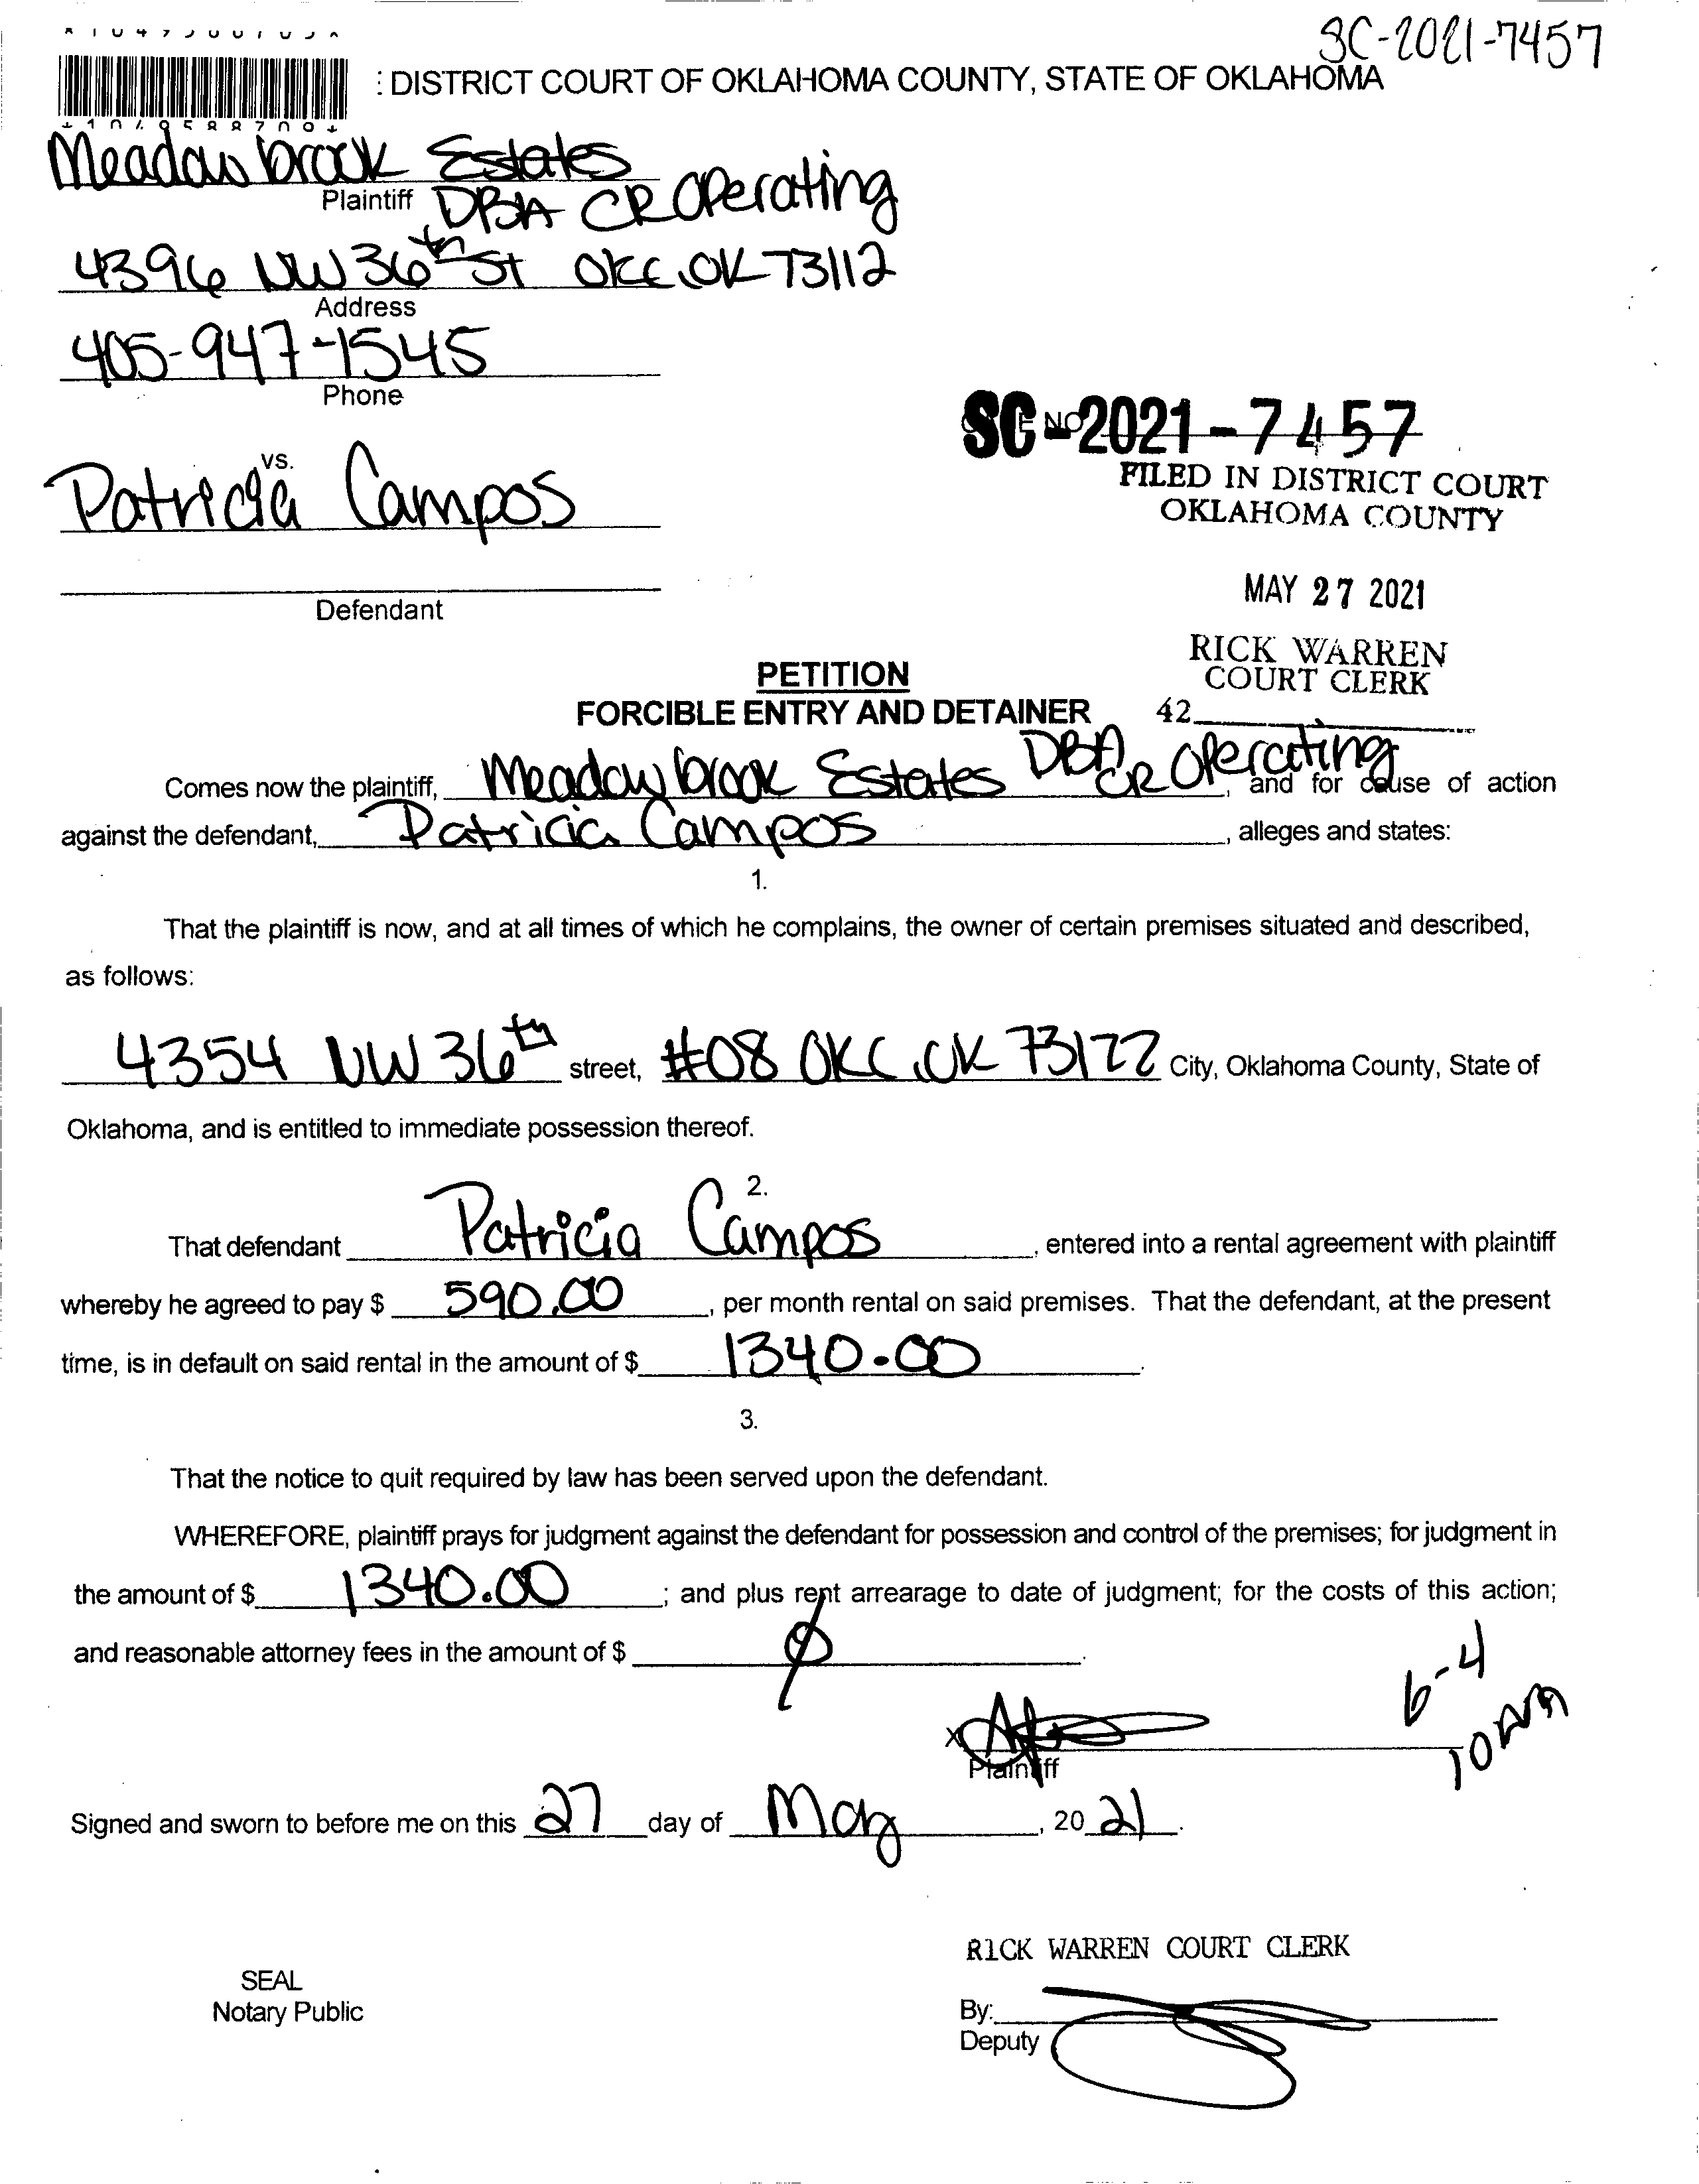 SC-2021-7457
: DISTRICT COURT OF OKLAHOMA COUNTY, STATE OF OKLAHOMA
Meadowbrook Estates
Plaintiff DBA CR Operating
4396 NW 36th St OKC, OK 73112
Address
405-947-1545
Phone
SC-2021-7457
vs.
FILED IN DISTRICT COURT
OKLAHOMA COUNTY
Patricia Campos
MAY 27 2021
Defendant
RICK WARREN
COURT CLERK
PETITION
FORCIBLE ENTRY AND DETAINER
42
Comes now the plaintiff, Meadowbrook Estates DBA CR Operating, and for cause of action
against the defendant, Patricia Campos, alleges and states:
1.
That the plaintiff is now, and at all times of which he complains, the owner of certain premises situated and described,
as follows:
4354 NW 36th street, #08 OKC, OK 73122 City, Oklahoma County, State of
Oklahoma, and is entitled to immediate possession thereof.
2.
That defendant Patricia Campos, entered into a rental agreement with plaintiff
whereby he agreed to pay $ 590.00, per month rental on said premises. That the defendant, at the present
time, is in default on said rental in the amount of $ 1340.00.
3.
That the notice to quit required by law has been served upon the defendant.
WHEREFORE, plaintiff prays for judgment against the defendant for possession and control of the premises; for judgment in
the amount of $ 1340.00; and plus rent arrearage to date of judgment; for the costs of this action;
and reasonable attorney fees in the amount of $ ∅.
6-4
10AM
X
Plaintiff
Signed and sworn to before me on this 27 day of May, 20 21.
RICK WARREN COURT CLERK
SEAL
Notary Public
By:
Deputy